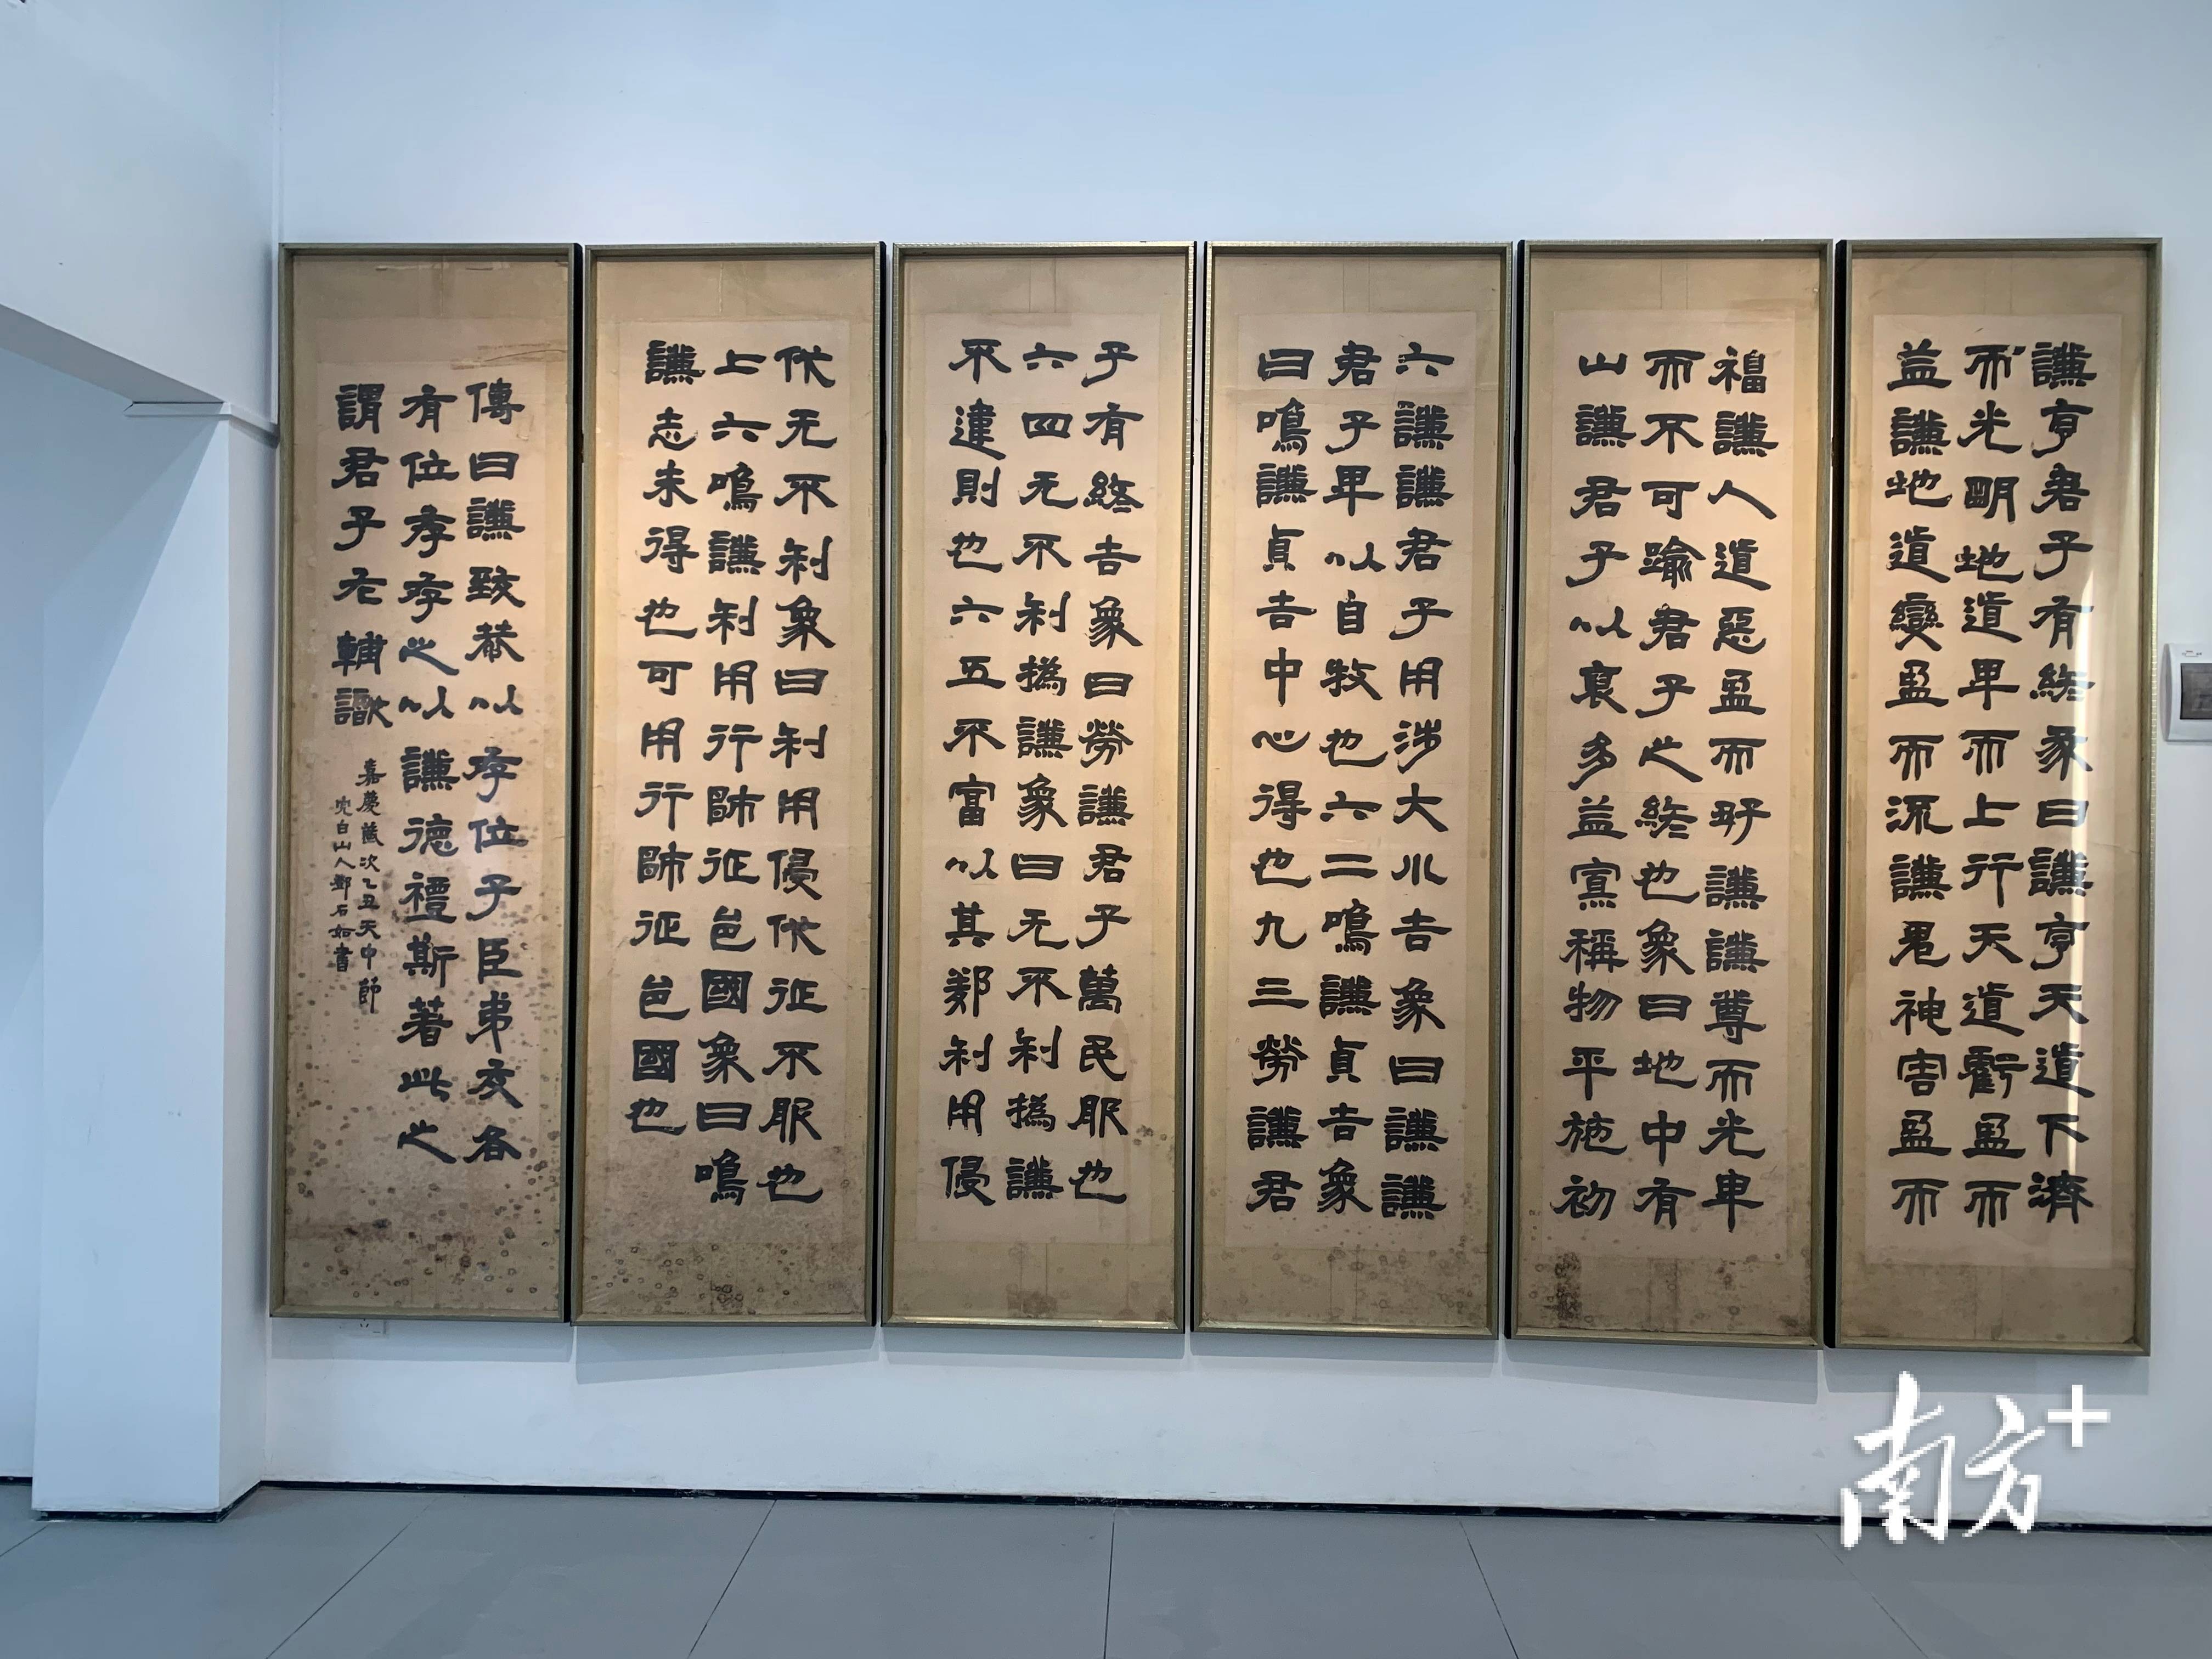 謙亨君子有終彖曰謙亨天道下濟
而光明地道卑而上行天道虧盈而
益謙地道變盈而流謙鬼神害盈而
福謙人道惡盈而好謙謙尊而光卑
而不可踰君子之終也象曰地中有
山謙君子以裒多益寡稱物平施初
六謙謙君子用涉大川吉象曰謙謙
君子卑以自牧也六二鳴謙貞吉象
曰鳴謙貞吉中心得也九三勞謙君
子有終吉象曰勞謙君子萬民服也
六四无不利撝謙象曰无不利撝謙
不違則也六五不富以其鄰利用侵
伐无不利象曰利用侵伐征不服也
上六鳴謙利用行師征邑國象曰鳴
謙志未得也可用行師征邑國也
傳曰謙致恭以存位子臣弟友各
有位存存之以謙德禮斯著此之
謂君子輔
嘉慶歲次乙丑天中節
完白山人鄧石如書
南方+